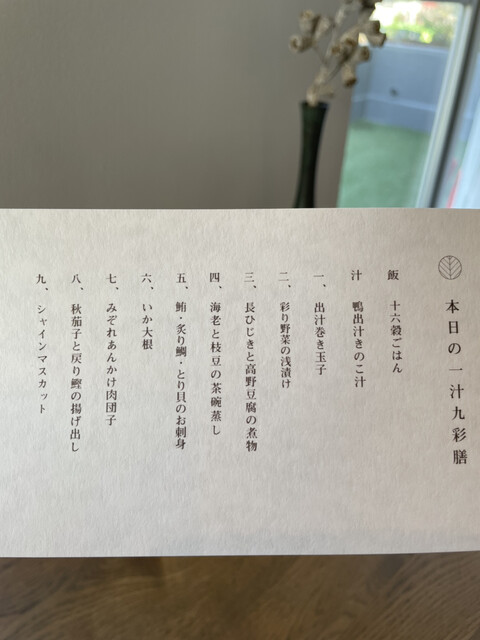 本日の一汁九彩膳
飯　十六穀ごはん
汁　鴨出汁きのこ汁
一、出汁巻き玉子
二、彩り野菜の浅漬け
三、長ひじきと高野豆腐の煮物
四、海老と枝豆の茶碗蒸し
五、鮪・炙り鯛・とり貝のお刺身
六、いか大根
七、みぞれあんかけ肉団子
八、秋茄子と戻り鰹の揚げ出し
九、シャインマスカット